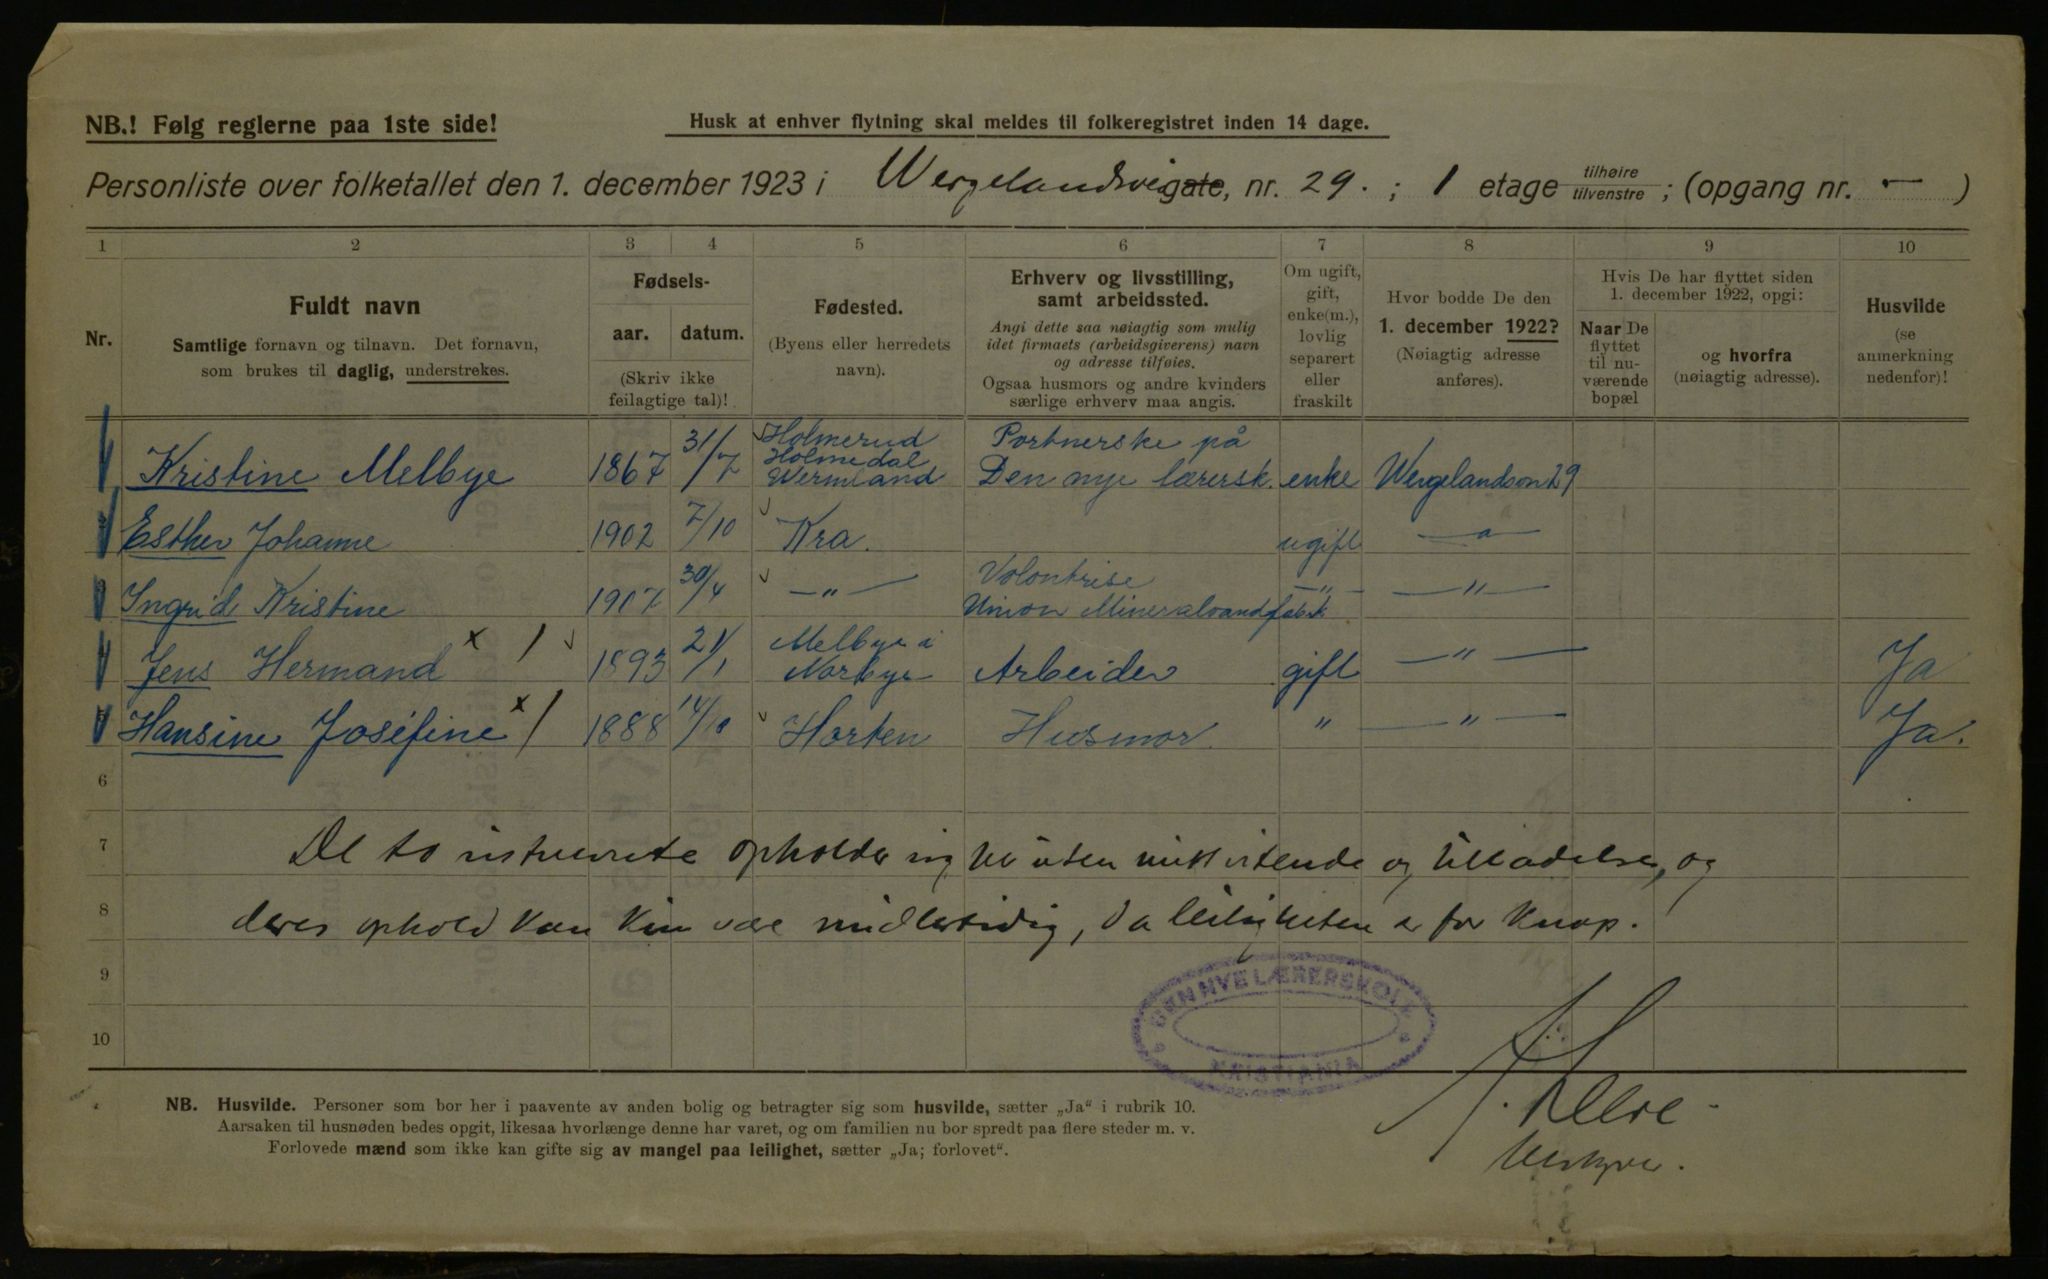 NB.! Følg reglerne paa 1ste side!
Husk at enhver flytning skal meldes til folkeregistret inden 14 dage.
Personliste over folketallet den 1. december 1923 i Wergelandsveigate, nr. 29. ; 1 etage tilhøire tilvenstre ; (opgang nr. — )
1 2 3 4 5 6 7 8 9 10
Nr.
Fuldt navn
Samtlige fornavn og tilnavn. Det fornavn,
som brukes til daglig, understrekes.
Fødsels-
aar. datum.
(Skriv ikke
feilagtige tal)!
Fødested.
(Byens eller herredets
navn).
Erhverv og livsstilling,
samt arbeidssted.
Angi dette saa nøiagtig som mulig
idet firmaets (arbeidsgiverens) navn
og adresse tilføies.
Ogsaa husmors og andre kvinders
særlige erhverv maa angis.
Om ugift,
gift,
enke(m.),
lovlig
separert
eller
fraskilt
Hvor bodde De den
1. december 1922?
(Nøiagtig adresse
anføres).
Hvis De har flyttet siden
1. december 1922, opgi:
Naar De
flyttet
til nu-
værende
bopæl
og hvorfra
(nøiagtig adresse).
Husvilde
(se
anmerkning
nedenfor)!
Kristine Melbye 1867 31/7 Holmerud Holmedal Wermland Portnerske på Den nye lærersk. enke Wergelandsvn 29
Esther Johanne 1902 7/10 Kra. ugift —"—
Ingrid Kristine 1907 30/4 —"— Volontrise Union Mineralvandfabrik —"— —"—
Jens Hermand x / 1893 21/1 Melbye i Norbye Arbeider gift —"— Ja
5 Hansine Josefine x / 1888 14/10 Horten Husmor. " —"— Ja.
6
7 De to opholder sig her uten mitt vitende og tilladelse, og
8 deres ophold kan kun være midlertidig, da leiligheten er for knap.
9
10
DEN NYE LÆRERSKOLE
KRISTIANIA
NB. Husvilde. Personer som bor her i paavente av anden bolig og betragter sig som husvilde, sætter „Ja" i rubrik 10.
Aarsaken til husnøden bedes opgit, likesaa hvorlænge denne har varet, og om familien nu bor spredt paa flere steder m. v.
Forlovede mænd som ikke kan gifte sig av mangel paa leilighet, sætter „Ja; forlovet".